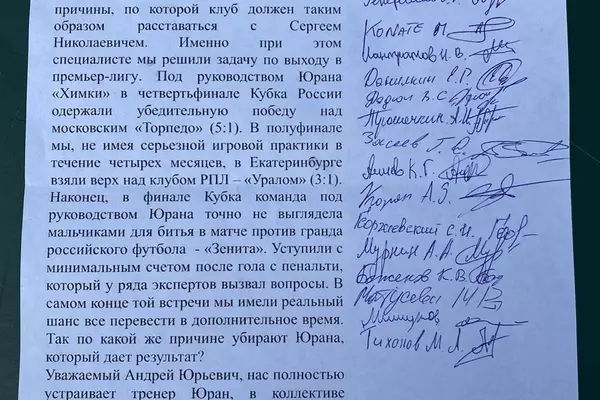 причины, по которой клуб должен таким
образом расставаться с Сергеем
Николаевичем. Именно при этом
специалисте мы решили задачу по выходу в
премьер-лигу. Под руководством Юрана
«Химки» в четвертьфинале Кубка России
одержали убедительную победу над
московским «Торпедо» (5:1). В полуфинале
мы, не имея серьезной игровой практики в
течение четырех месяцев, в Екатеринбурге
взяли верх над клубом РПЛ – «Уралом» (3:1).
Наконец, в финале Кубка команда под
руководством Юрана точно не выглядела
мальчиками для битья в матче против гранда
российского футбола - «Зенита». Уступили с
минимальным счетом после гола с пенальти,
который у ряда экспертов вызвал вопросы. В
самом конце той встречи мы имели реальный
шанс все перевести в дополнительное время.
Так по какой же причине убирают Юрана,
который дает результат?
Уважаемый Андрей Юрьевич, нас полностью
устраивает тренер Юран, в коллективе
KONATE M.
Кантроннов И. В.
Данилкин Е. Р.
Трошечкин А.
Корпан А. S.
Коржневский С. И.
Мурнин А. А.
Боженов К. В.
Тихонов М. А.